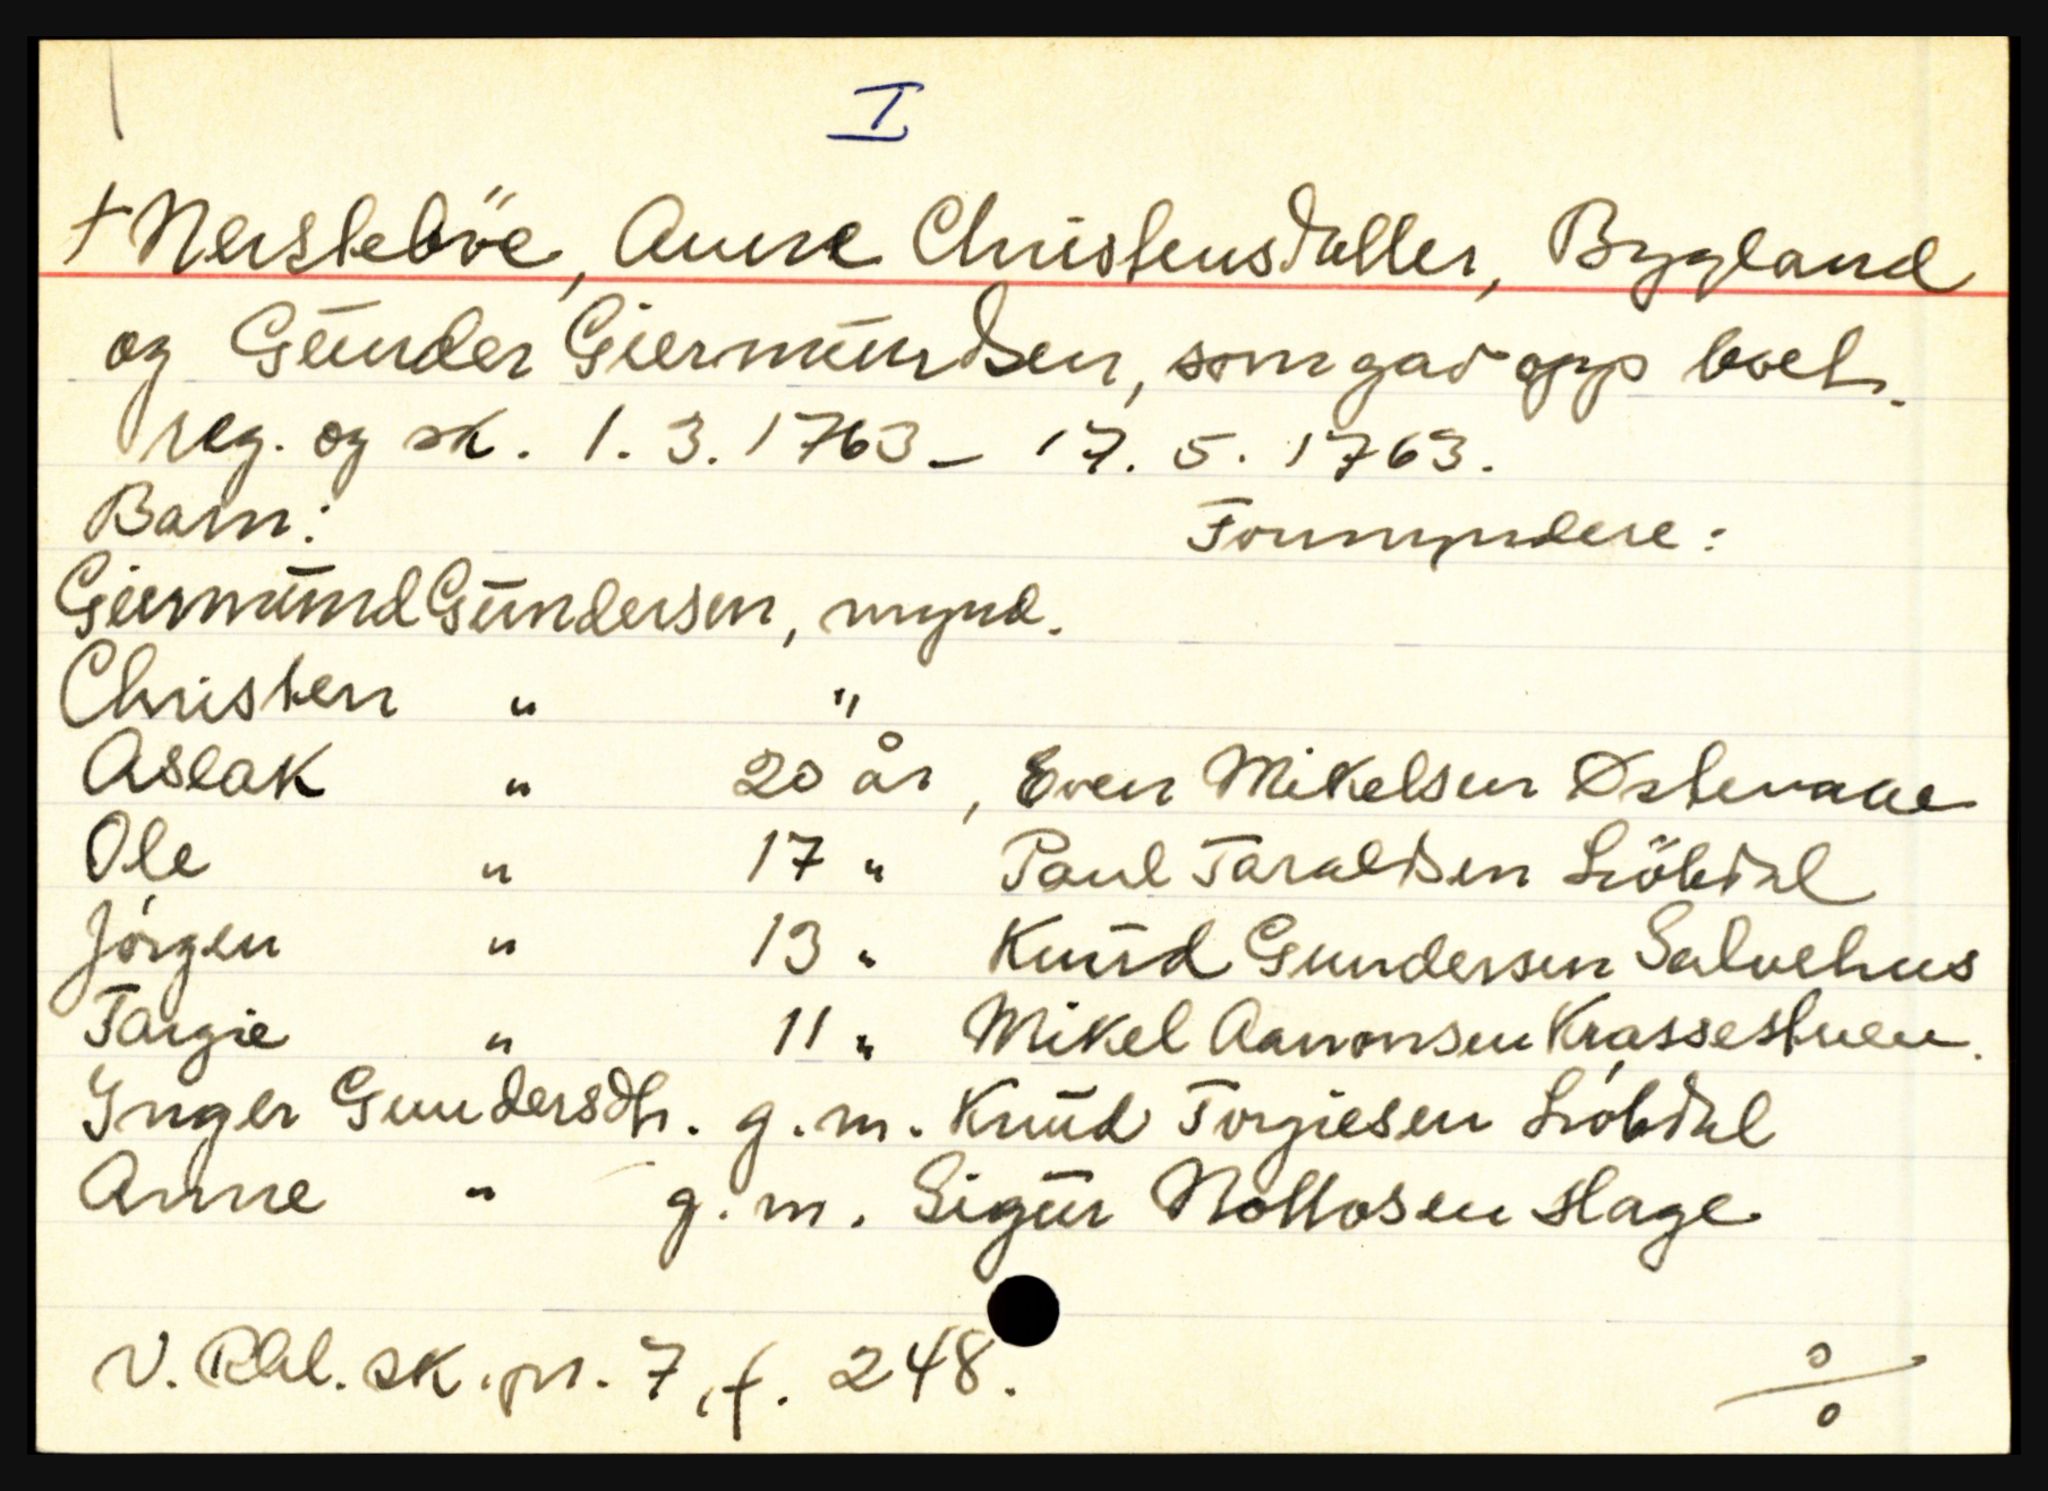 I
† Nersteböe, Anne Christensdatter, Bygland
og Gunder Giermundsen, som gav opp boet.
reg. og sk. 1.3.1763 - 17.5.1763.
Barn: Formyndere:
Giermund Gundersen, mynd.
Christen " "
Aslak " 20 år, Even Mikelsen
Ole " 17 " Paul Taraldsen Liöbdal
Jörgen " 13 " Knud Gundersen Salvehus
Targie " 11 " Mikel Aanonsen
Inger Gundersdtr. g.m. Knud Torgiesen Liöbdal
Anne " g.m. Sigur Nottosen Hage
V. Rbl. sk.pr. 7, f. 248.